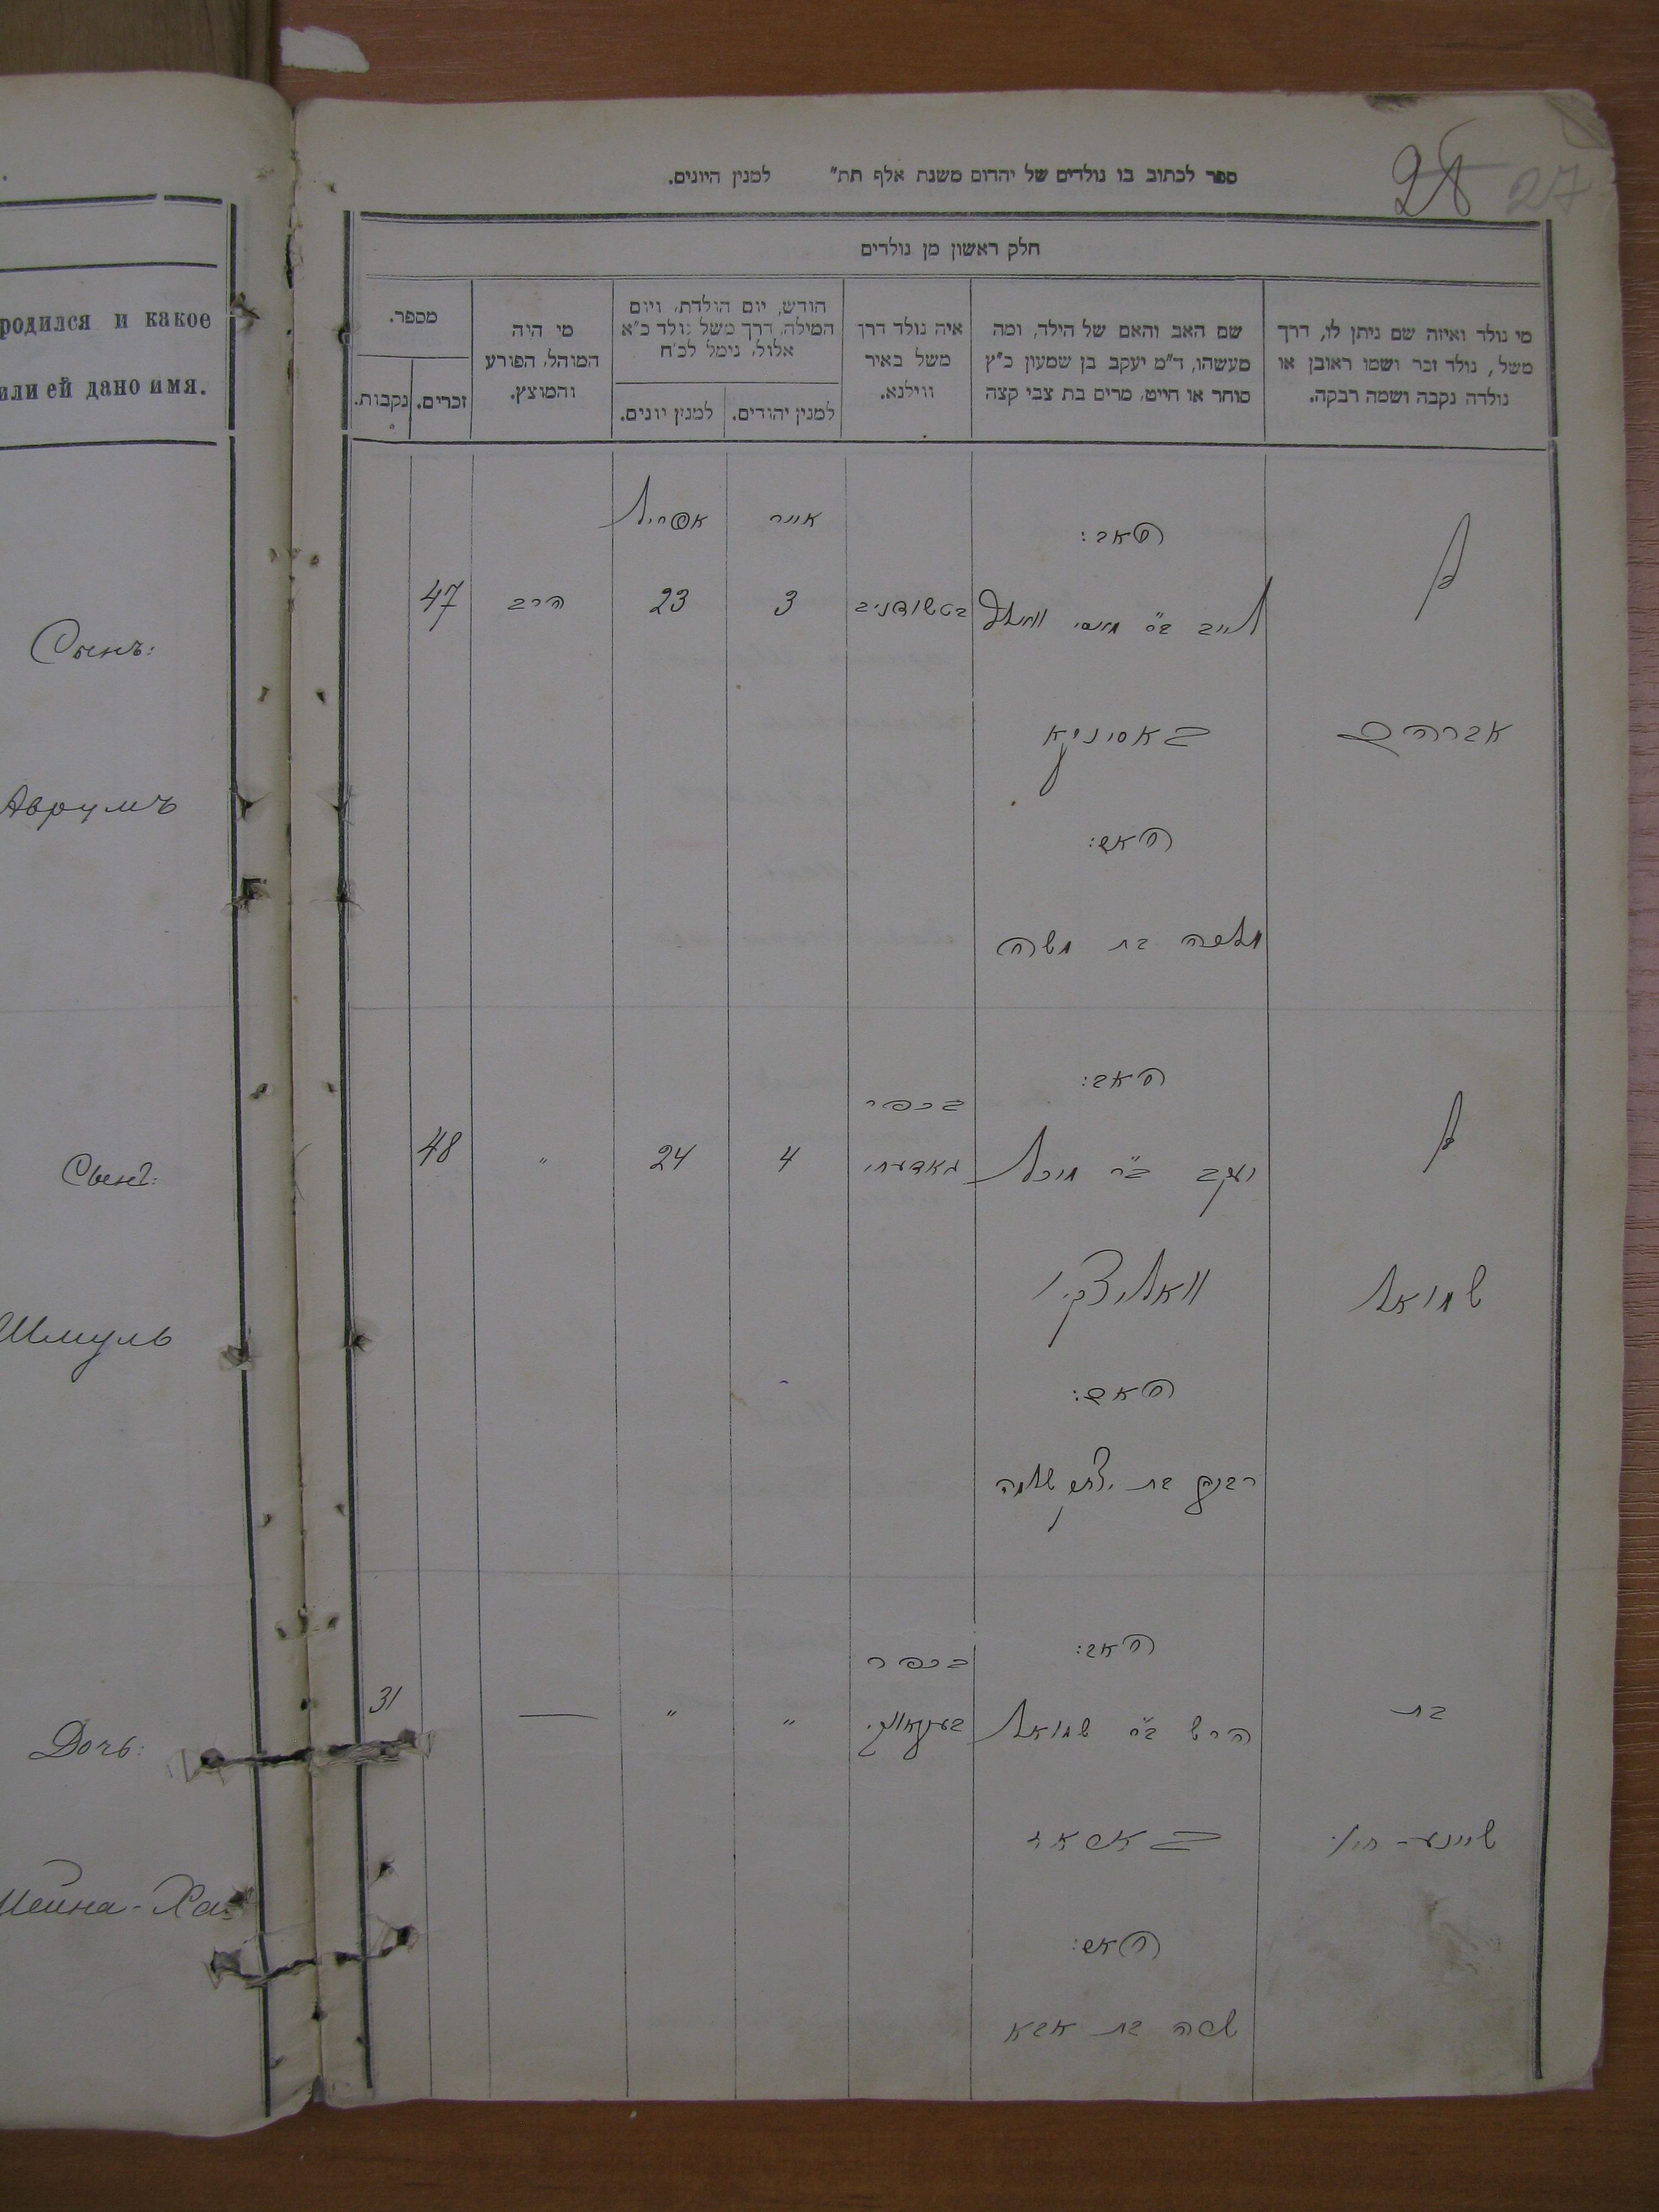 28 27
ספר לכתוב בו נולדים של יהדום משנת אלף תת״ למנין היונים.
חלק ראשון מן נולדים
מי נולד ואיזה שם ניתן לו, דרך
משל, נולד זכר ושמו ראובן או
נולדה נקבה ושמה רבקה.
שם האב והאם של הילד, ומה
מעשהו, ד״מ יעקב בן שמעון כ״ץ
סוחר או חייט, מרים בת צבי קצה
איה נולד דרך
משל באיר
ווילנא.
הודש, יום הולדת, ויום
המילה, דרך משל נולד כ״א
אלול, נימל לכ״ח
למנין יהודים.
למנין יונים.
מי היה
המוהל, הפורע
והמוצץ.
מספר.
זכרים.
נקבות.
родился и какое
или ей дано имя.
בן
אברהם
האב:
לייב ב״ר
האם:
מלכה בת משה
אייר
3
אפריל
23
הרב
47
Сынъ:
Аврумъ
בן
שמואל
האב:
יעקב ב״ר מיכל
וואליצקי
האם:
רבקה בת שלמה
בכפר
4
24
״
48
Сынъ:
Шмуль
בת
שיינע-חי׳
האב:
הרש ב״ר שמואל
האם:
בת אבא
בכפר
״
״
—
31
Дочь:
Шейна-Хая